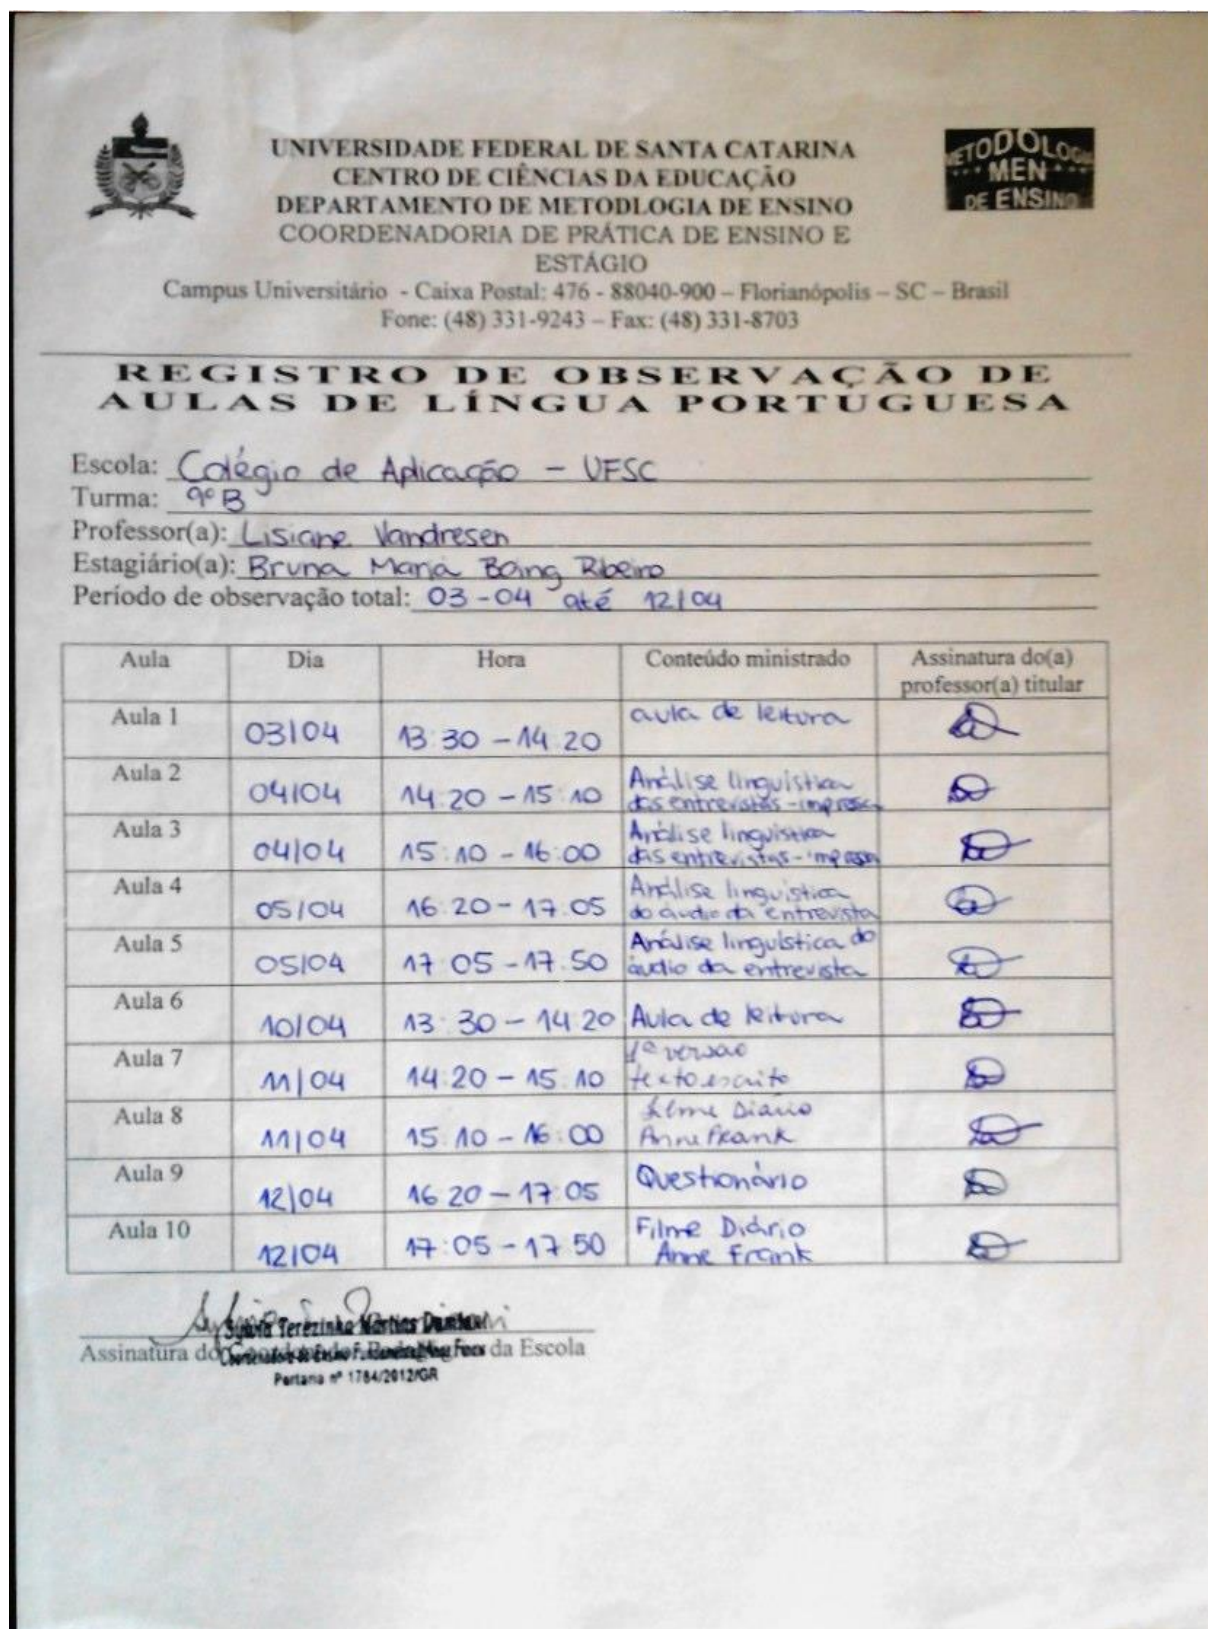 UNIVERSIDADE FEDERAL DE SANTA CATARINA
CENTRO DE CIÊNCIAS DA EDUCAÇÃO
DEPARTAMENTO DE METODLOGIA DE ENSINO
COORDENADORIA DE PRÁTICA DE ENSINO E
ESTÁGIO
METODOLOGIA
MEN
DE ENSINO
Campus Universitário - Caixa Postal: 476 - 88040-900 – Florianópolis – SC – Brasil
Fone: (48) 331-9243 – Fax: (48) 331-8703
REGISTRO DE OBSERVAÇÃO DE
AULAS DE LÍNGUA PORTUGUESA
Escola: Colégio de Aplicação - UFSC
Turma: 9º B
Professor(a): Lisiane Vandresen
Estagiário(a): Bruna Maria Boing Ribeiro
Período de observação total: 03-04 até 12/04
Aula Dia Hora Conteúdo ministrado Assinatura do(a)
professor(a) titular
Aula 1 03/04 13:30 - 14:20 aula de leitura
Aula 2 04/04 14:20 - 15:10 Análise linguística
das entrevistas - impressa
Aula 3 04/04 15:10 - 16:00 Análise linguística
das entrevistas - impressa
Aula 4 05/04 16:20 - 17:05 Análise linguística
do áudio da entrevista
Aula 5 05/04 17:05 - 17:50 Análise linguística do
áudio da entrevista
Aula 6 10/04 13:30 - 14:20 Aula de leitura
Aula 7 11/04 14:20 - 15:10 1ª versão
texto escrito
Aula 8 11/04 15:10 - 16:00 filme Diário
Anne Frank
Aula 9 12/04 16:20 - 17:05 Questionário
Aula 10 12/04 17:05 - 17:50 Filme Diário
Anne Frank
Sylvia Terezinha Martins Damiani
Assinatura do da Escola
Portaria nº 1784/2012/GR